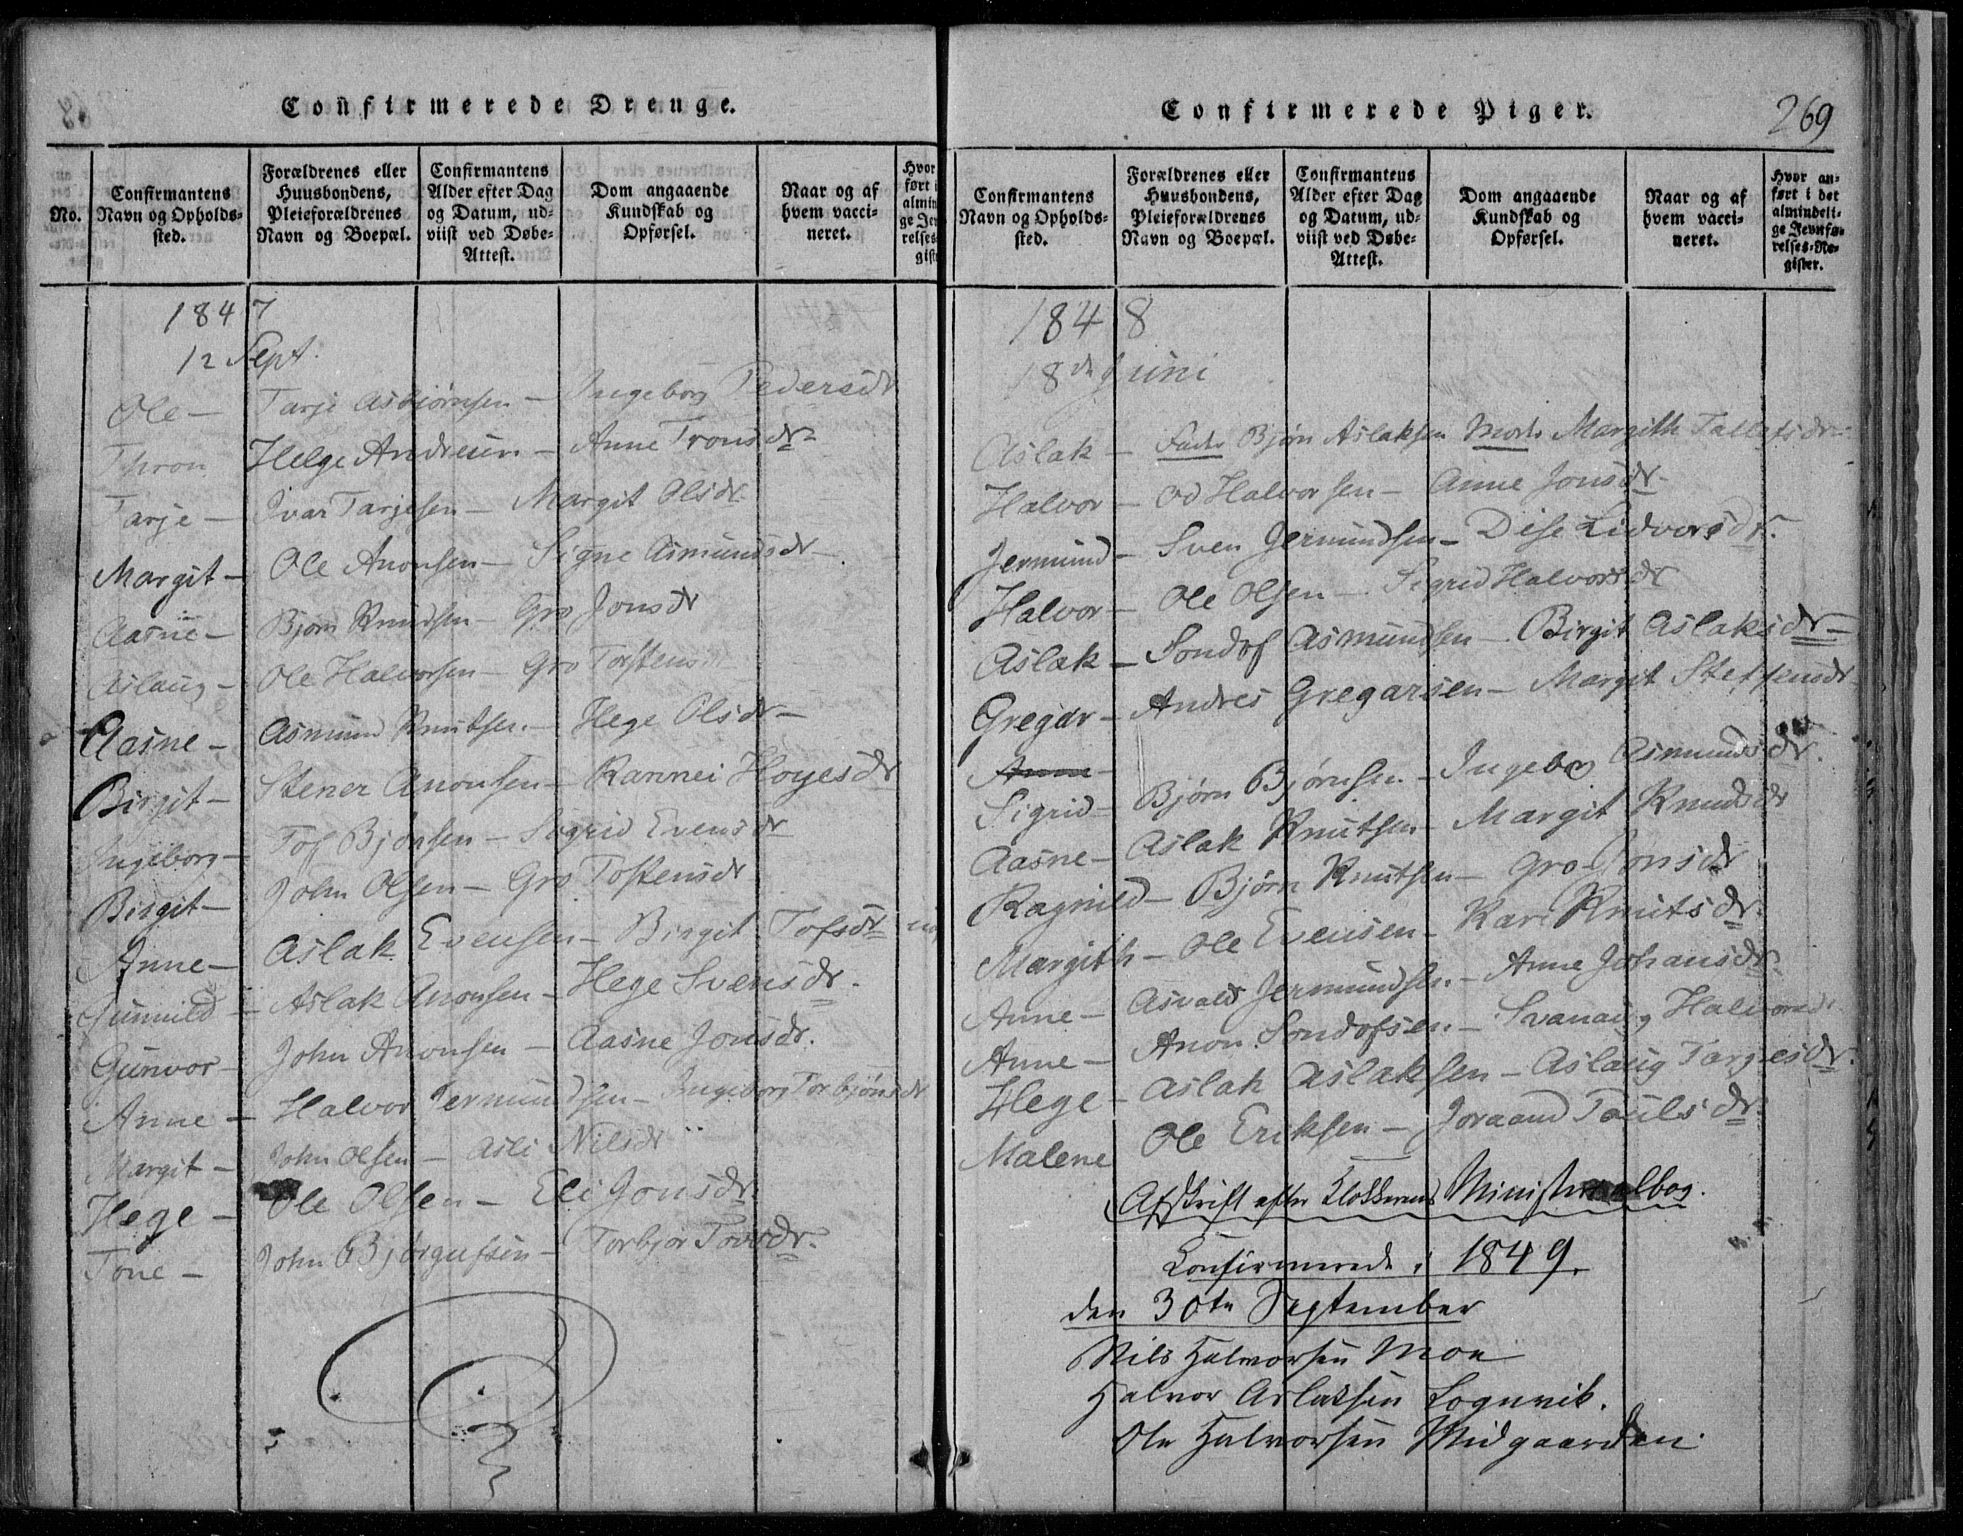 Confirmerede Drenge.
No.
Confirmantens Navn og Opholdssted.
Forældrenes eller Huusbondens, Pleieforældrenes Navn og Boepæl.
Confirmantens Alder efter Dag og Datum, udviist ved Døbe-Attest.
Dom angaaende Kundskab og Opførsel.
Naar og af hvem vaccineret.
1847
12 Sept.
Ole — Tarje Asbjørnsen — Ingeborg Pedersdr
Thron Helge Andresen — Anne Tronsdr
Tarje — Ivar Tarjesen — Margit Olsdr
Margit — Ole Anonsen — Signe Asmundsdr —
Aasne — Bjørn Knudsen — Gro Jonsdr
Aslaug — Ole Halvorsen — Gro Torstens
Aasne — Asmund Knutsen — Hege Olsdr —
Birgit — Stener Anonsen — Rannei Hoyesdr
Ingeborg — Tof Bjønsen — Sigrid Evensdr
Birgit — John Olsen — Gro Tostensdr
Anne — Aslak Evensen — Birgit Tofsdr
Gunnild — Aslak Anonsen — Hege Svensdr.
Gunvor — John Anonsen — Aasne Jonsdr.
Anne — Halvor Jermundsen — Ingeborg Torbjønsdr
Margit — John Olsen — Asli Nilsdr
Hege — Ole Olsen — Eli Jonsdr
Tone — John Bjørgufsen — Torbjør Tovsdr.
Confirmerede Piger.
269
Confirmantens Navn og Opholdssted.
Forældrenes eller Huusbondens, Pleieforældrenes Navn og Boepæl.
Confirmantens Alder efter Dag og Datum, udviist ved Døbe-Attest.
Dom angaaende Kundskab og Opførsel.
Naar og af hvem vaccineret.
Hvor anført i det almindelige Jevnførelses-Register.
1848
18de Juni
Aslak — Fader Bjørn Aslaksen Moder Margith Tallefsdr
Halvor — Od Halvorsen — Anne Jonsdr
Jermund — Sven Jermundsen — Dise Lidvorsdr.
Halvor — Ole Olsen — Sigrid Halvorsdr
Aslak — Sondof Asmundsen — Birgit Aslaksdr —
Gregar — Andres Gregarsen — Margit Steffensdr
Anne —
Sigrid — Bjørn Bjørnsen — Ingebor Asmundsdr.
Aasne — Aslak Knutsen — Margit Knudsdr
Ragnild — Bjørn Knutsen — Gro Jonsdr
Margith — Ole Evensen — Kari Knutsdr.
Anne — Asvald Jermundsen — Anne Johansdr
Anne — Anon Sondofsen — Svanaug Halvorsdr
Hege — Aslak Aslaksen — Aslaug Targesdr.
Malene Ole Eriksen — Joraand Paulsdr
Afskrift efter Klokkerens Ministerialbog.
Confirmerede i 1849.
den 30te September
Nils Halvorsen Moe
Halvor Aslaksen Lognvik.
Ole Halvorsen Midgaarden.